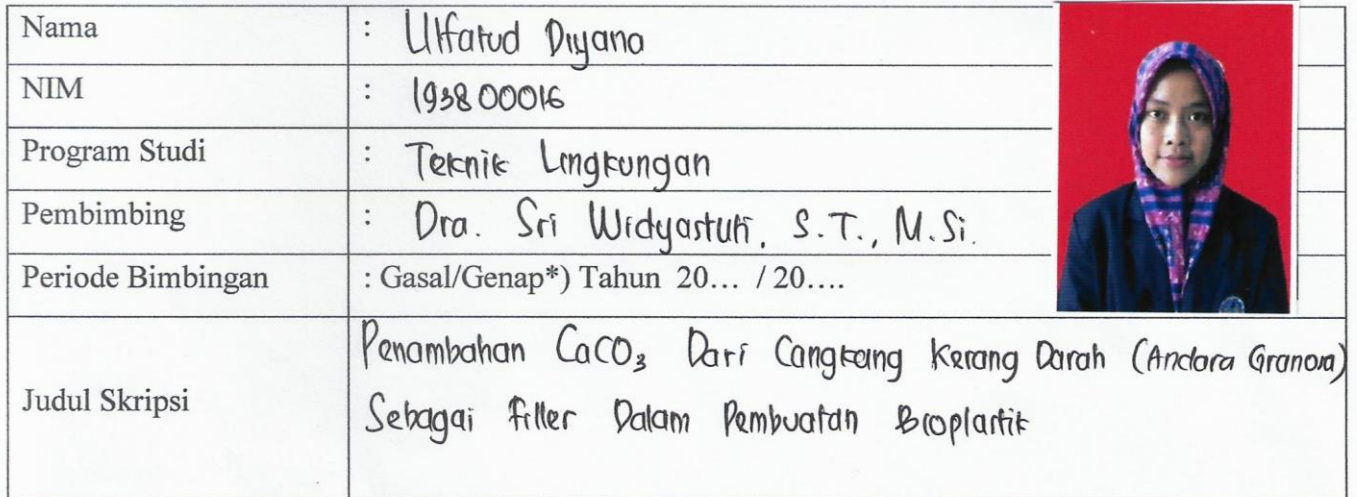 Nama : Ulfatud Diyana
NIM : 193800016
Program Studi : Teknik Lingkungan
Pembimbing : Dra. Sri Widyastuti, S.T., M.Si.
Periode Bimbingan : Gasal/Genap*) Tahun 20... / 20....
Judul Skripsi
Penambahan CaCO₃ Dari Cangkang Kerang Darah (Andara Granosa)
Sebagai Filler Dalam Pembuatan Bioplastik